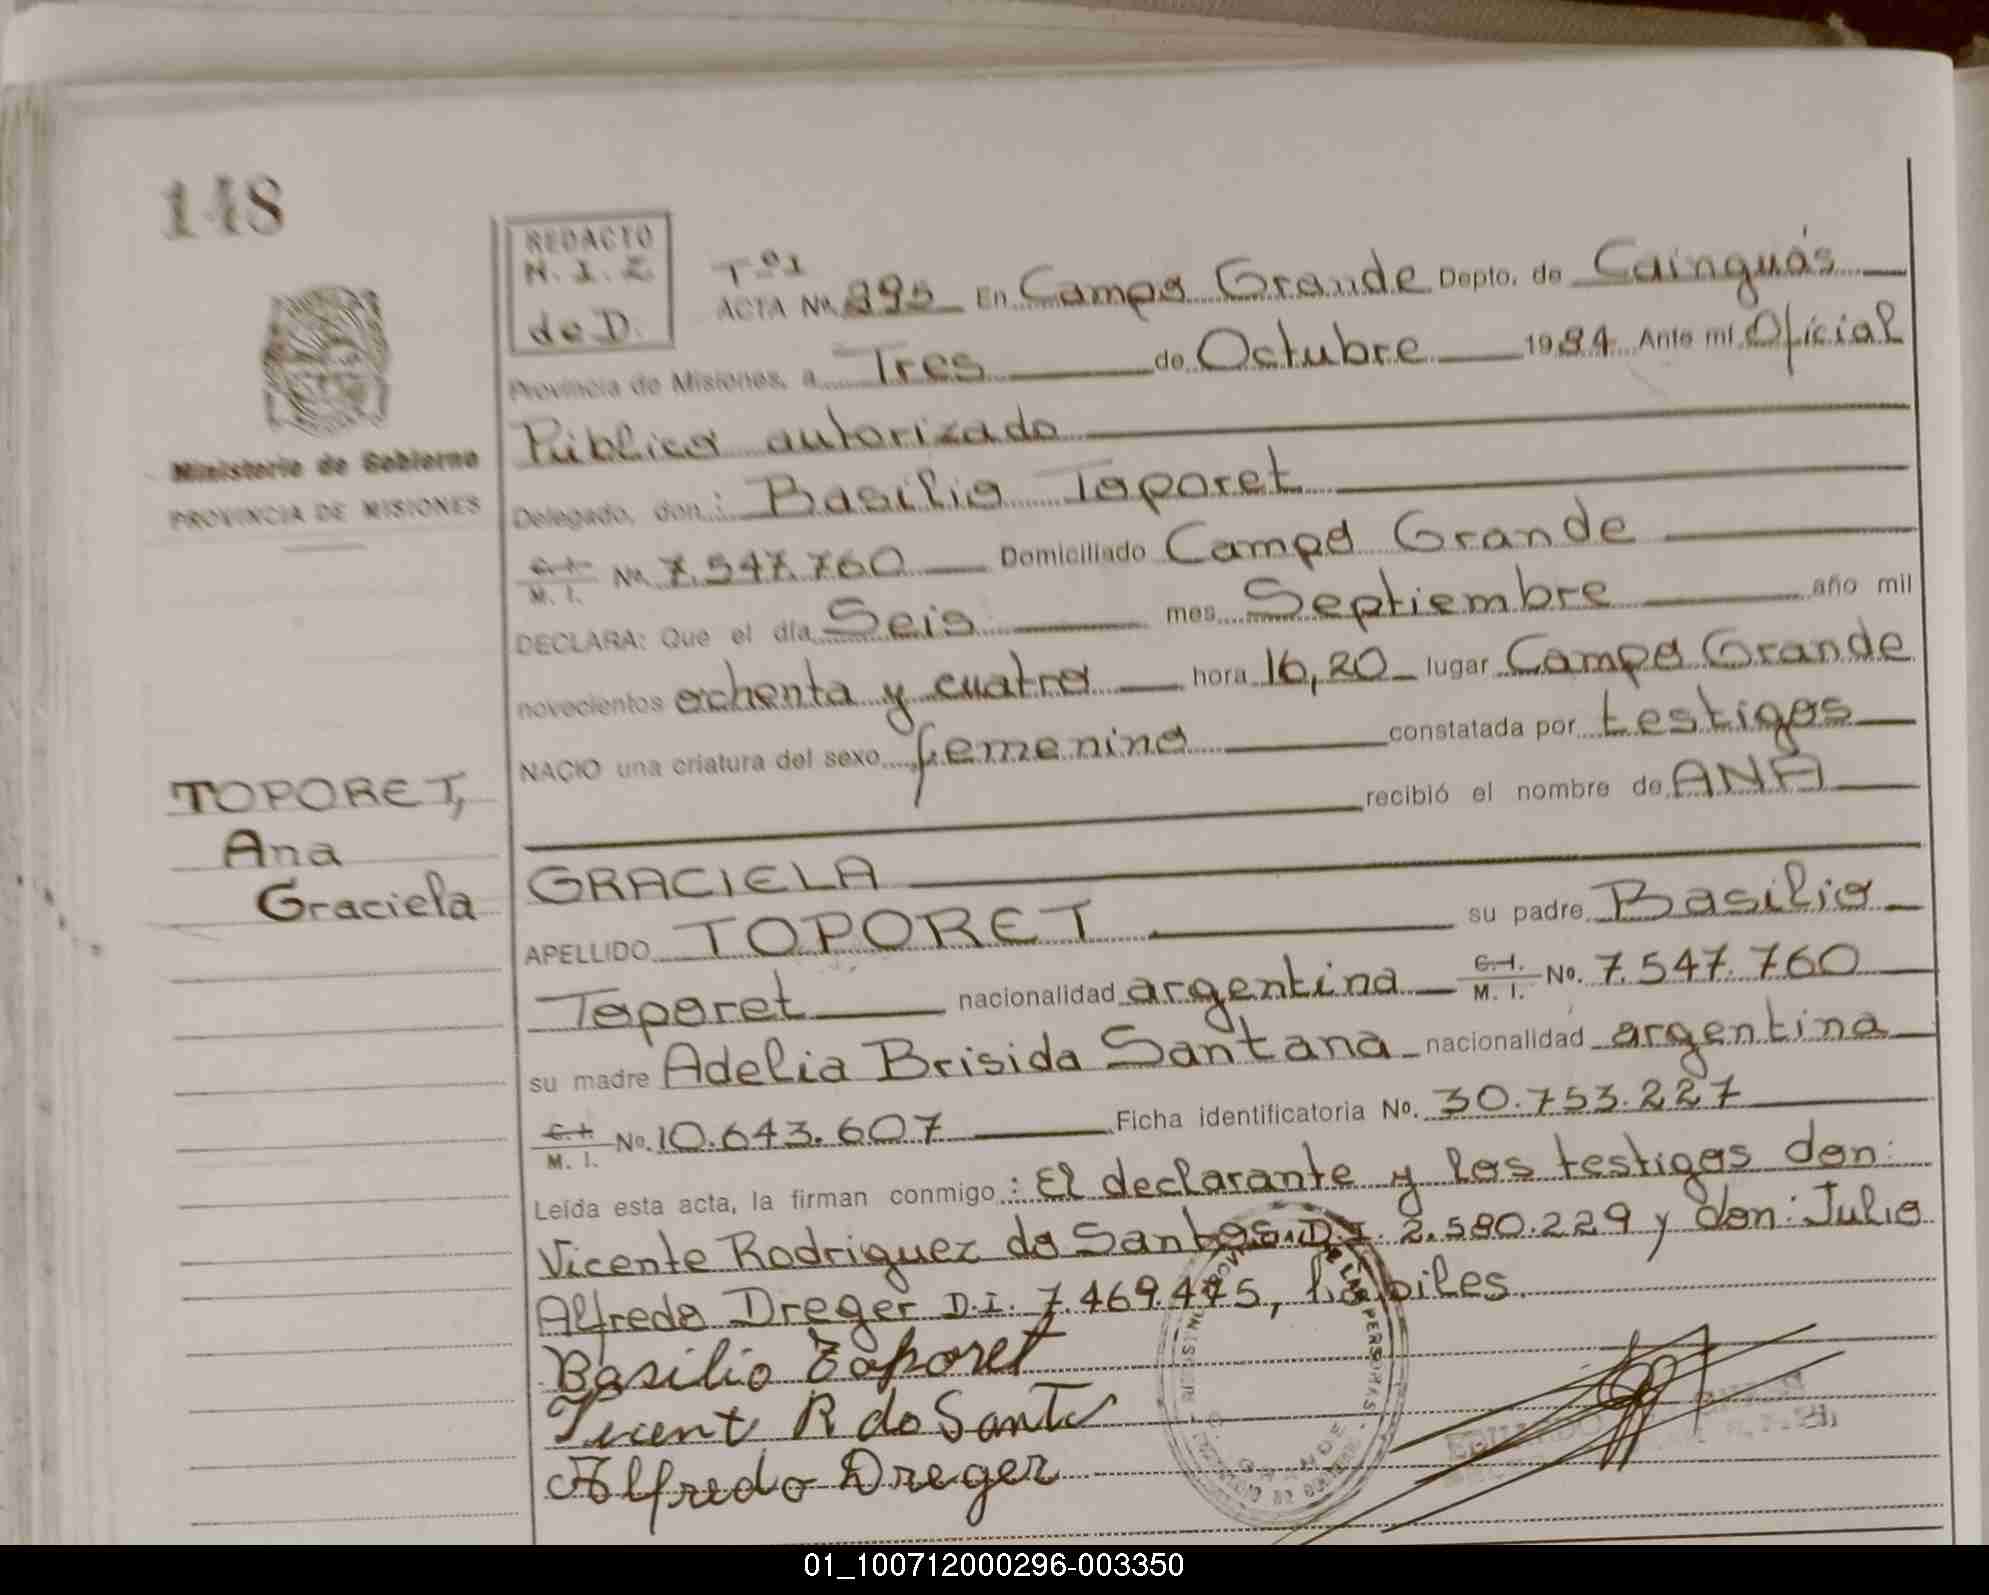 148
REDACTO
N. I. Z
de D.
Tº1
ACTA No. 395 En Campo Grande Depto. de Cainguás
Provincia de Misiones, a Tres de Octubre 1984 Ante mí Oficial
Público autorizado
Delegado, don: Basilio Toporet
C.I. M. I. No. 7.547.760 Domiciliado Campo Grande
DECLARA: Que el día Seis mes Septiembre año mil
novecientos ochenta y cuatro hora 16,20 lugar Campo Grande
NACIO una criatura del sexo femenino constatada por testigos
recibió el nombre de ANA
GRACIELA
APELLIDO TOPORET su padre Basilio
Toporet nacionalidad argentina C.I. M. I. No. 7.547.760
su madre Adelia Brisida Santana nacionalidad argentina
C.I. M. I. No. 10.643.607 Ficha identificatoria No. 30.753.227
Leída esta acta, la firman conmigo: El declarante y los testigos don:
Vicente Rodriguez do Santos D.I. 2.580.229 y don: Julio
Alfredo Dreger D.I. 7.469.475, hábiles.
Basilio Toporet
Vicent R do Sants
Alfredo Dreger
Ministerio de Gobierno
PROVINCIA DE MISIONES
TOPORET,
Ana
Graciela
01_100712000296-003350